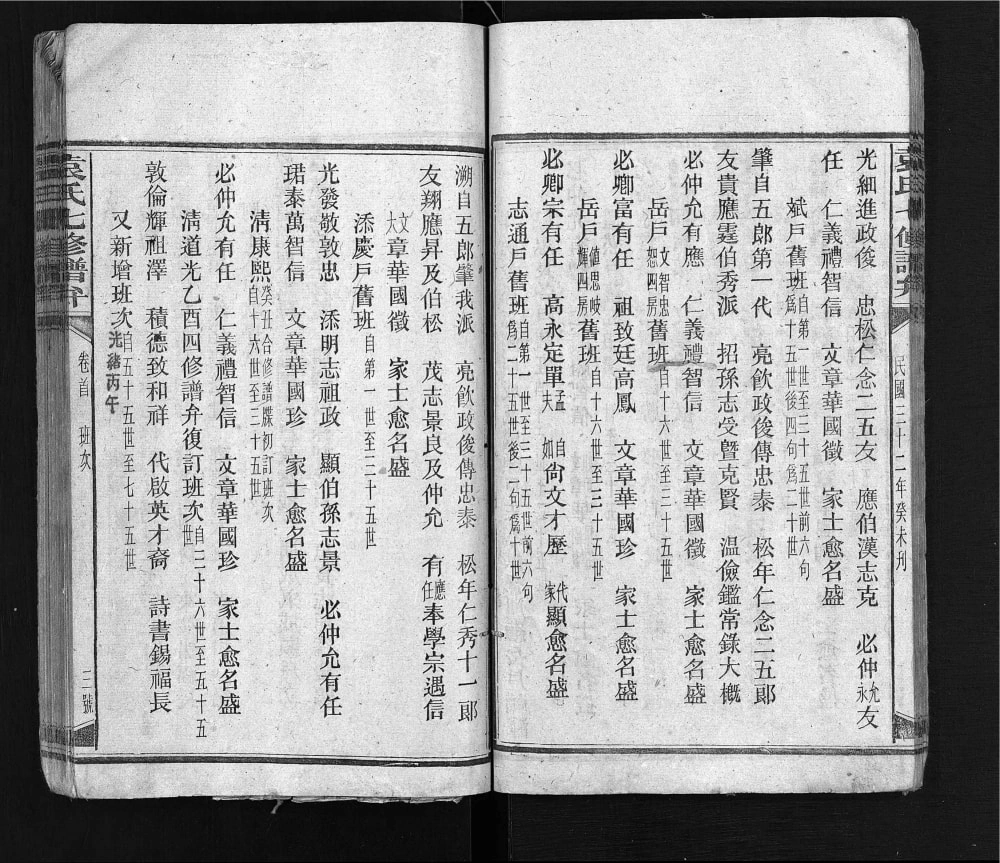 袁氏七修譜弁
民國三十二年癸未刋
光細進政俊　忠松仁念二五友　應伯漢志克　必仲允永友
任　仁義禮智信　文章華國徵　家士愈名盛
斌戶舊班自第一世至三十五世前六句爲十五世後四句爲二十世
肇自五郎第一代　亮飲政俊傳忠泰　松年仁念二五郎
友貴應霆伯秀派　招孫志受暨克賢　温儉鑑常錄大概
必仲允有應　仁義禮智信　文章華國徵　家士愈名盛
岳戶文智忠恕四房舊班自十六世至三十五世
必卿富有任　祖致廷高鳳　文章華國珍　家士愈名盛
岳戶値思岐輝四房舊班自十六世至三十五世
必卿宗有任　高永定單孟夫　自如尙文才歷　代家顯愈名盛
志通戶舊班自第一世至三十五世前六句爲二十五世後二句爲十世
溯自五郎肇我派　亮飲政俊傳忠泰　松年仁秀十一郎
友翔應昇及伯松　茂志景良及仲允　有應任奉學宗遇信
文大章華國徵　家士愈名盛
添慶戶舊班自第一世至三十五世
光發敬敦忠　添明志祖政　顯伯孫志景　必仲允有任
珺泰萬智信　文章華國珍　家士愈名盛
淸康熙癸丑合修譜牒初訂班次自十六世至三十五世
必仲允有任　仁義禮智信　文章華國珍　家士愈名盛
淸道光乙酉四修譜弁復訂班次自三十六世至五十五世
敦倫輝祖澤　積德致和祥　代啟英才裔　詩書錫福長
又新增班次光緒丙午自五十五世至七十五世
袁氏七修譜弁
卷首　班次
三號